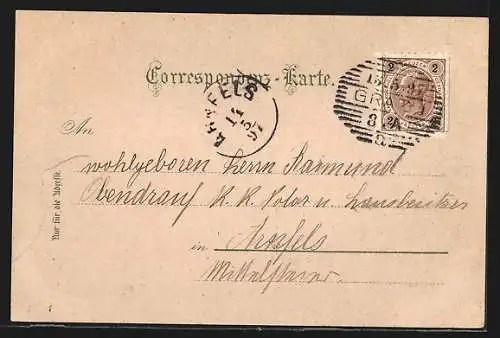 Correspondenz-Karte.
2 2
GR
ARNFELS
97
An
wohlgeboren Herrn Raimund
Obendrauf K. K. Notar u. Hausbesitzer
in Arnfels
Mittelsteier
Nur für die Adresse.